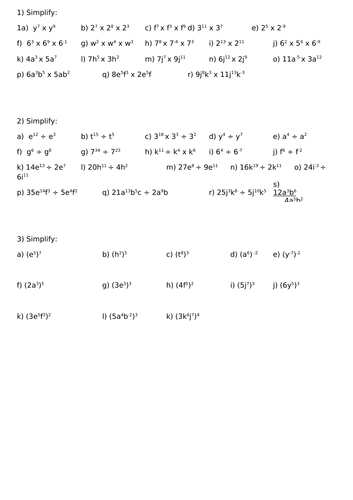 1) Simplify:
1a) y⁷ x y⁹ b) 2⁷ x 2⁸ x 2³ c) f⁷ x f³ x f⁹ d) 3¹¹ x 3⁷ e) 2⁵ x 2⁻⁹
f) 6³ x 6⁹ x 6⁻¹ g) w² x w⁴ x w³ h) 7⁹ x 7⁻⁴ x 7³ i) 2¹³ x 2¹¹ j) 6² x 5⁶ x 6⁻⁹
k) 4a³ x 5a⁷ l) 7h⁵ x 3h² m) 7j⁷ x 9j¹¹ n) 6j¹² x 2j⁹ o) 11a⁻⁵ x 3a¹²
p) 6a³b⁵ x 5ab² q) 8e⁵f³ x 2e⁵f r) 9j⁸k³ x 11j¹³k⁻³
2) Simplify:
a) e¹² ÷ e³ b) t¹⁵ ÷ t⁵ c) 3¹⁸ x 3³ ÷ 3² d) y⁴ ÷ y⁷ e) a⁴ ÷ a²
f) g⁶ ÷ g⁸ g) 7³⁴ ÷ 7²³ h) k¹¹ ÷ k⁴ x k⁶ i) 6⁴ ÷ 6⁻⁷ j) f⁶ ÷ f⁻²
k) 14e¹³ ÷ 2e⁷ l) 20h¹¹ ÷ 4h² m) 27e⁸ ÷ 9e¹¹ n) 16k¹⁹ ÷ 2k¹¹ o) 24i⁻³ ÷
6i¹¹
s)
p) 35e¹⁴f³ ÷ 5e⁴f² q) 21a¹³b⁵c ÷ 2a⁹b r) 25j⁷k⁸ ÷ 5j¹⁰k⁵ 12a³b⁶
4a⁵b²
3) Simplify:
a) (e⁵)⁷ b) (h²)⁵ c) (t⁸)³ d) (a⁶) ⁻² e) (y⁻⁷)⁻²
f) (2a³)⁵ g) (3e⁷)³ h) (4f⁵)² i) (5j⁷)³ j) (6y⁵)³
k) (3e⁵f³)² l) (5a⁴b⁻²)³ k) (3k⁶j⁷)⁴